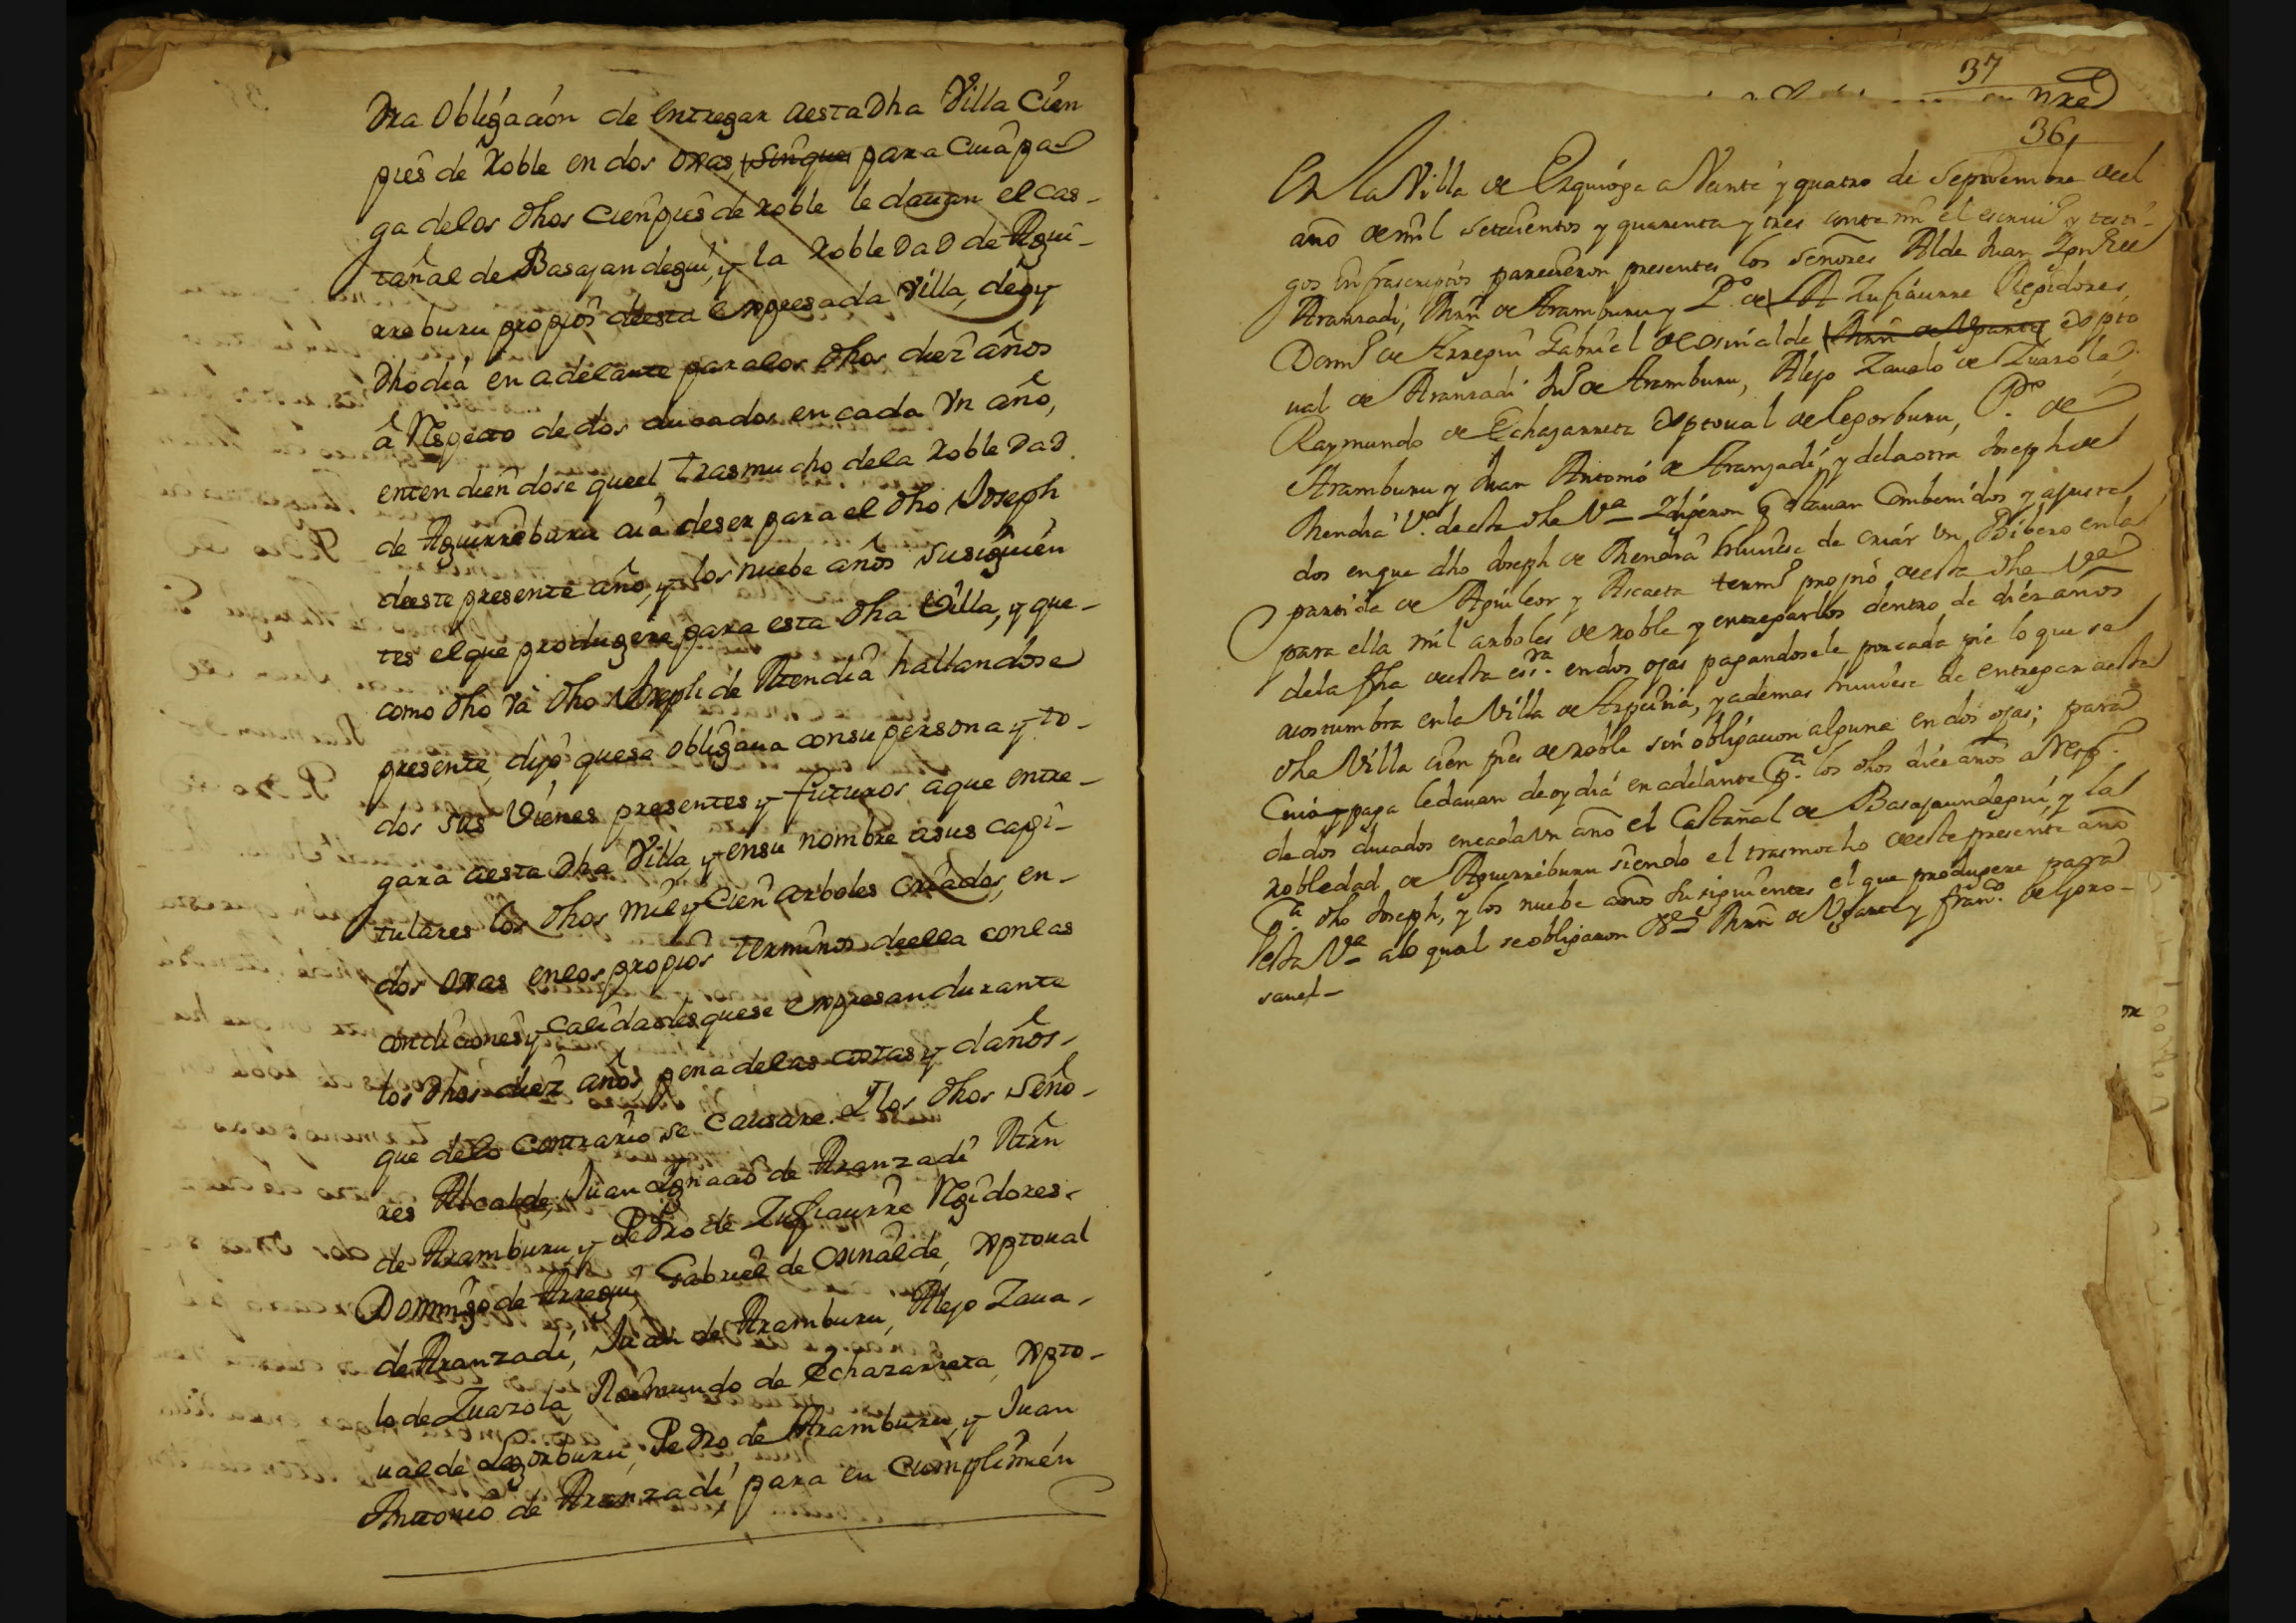 Dra Obligación de entregar aesta Dha Villa Cien
pies de Roble en dos oxas, sinque para cuia pa
ga delos dhos Cien pies de roble le dauan el cas-
tañal de Basajandegui, y la Roble dad de Agui-
rreburu propios deesta expresada Villa, de oy
dho dia en adelante para los dhos diez años
â Respecto de dos ducados en cada Vn año,
entendiendose que el trasmucho dela Roble dad
de Aguirreburu aia deser para el dho Joseph
deeste presente año, y los nuebe años Susiguien
tes el que produgere para esta dha Villa, y que-
como dho vâ dho Joseph de Rendia hallandose
presente, dijo que se obligaua con su persona y to-
dos sus Vienes presentes y futuros aque entre-
gara aesta Dha Villa, y ensu nombre asus capi-
tulares los dhos mil y Cien arboles criados, en-
dos oxas enlos propios terminos deella conlas
condiciones y calidades quese expresan durante
los dhos diez años, pena delas costas y daños-
que delo contrario se causare. Y los dhos Seño-
res Alcalde, Juan Ignacio de Aranzadi Mrn
de Aramburu, y Pedro de Zufiaurre Regidores-
Domingo de Arregui, Gabriel de Osinalde, Xptoual
de Aranzadi, Juan de Aramburu, Alejo Zaua-
lo de Zuazola, Raimundo de Echazarreta, Xpto-
ual de Legorburu, Pedro de Aramburu, y Juan
Antonio de Aranzadi, para en Cumplimien
37
36
En la Villa de Ezquioga a Veinte y quatro de Septiembre del
año de mil setecientos y quarenta y tres ante mi el escriuº y testi-
gos infrascriptos parecieron presentes los señores Alde Juan Ign de
Aranzadi, Mrn de Aramburu y Pº de Zufiaurre Regidores,
Domº de Arregui Gabriel de Osinalde Xpto
ual de Aranzadi Juº de Aramburu, Alejo Zaualo de Zuazola,
Raymundo de Echazarreta Xptoual de legorburu, Pº de
Aramburu y Juan Antonio de Aranzadi, y dela otra Joseph de
Rendia Vº de esta dha Vª Y dijeron q estauan Combenidos y ajusta
dos en que dho Joseph de Rendia hubiese de criar Vn Bibero en la
partida de Aguileor y Ascaeta termº propio deesta dha Vª
para ella mil arboles de roble y entregarlos dentro de diez años
dela fha deesta essra en dos ojas pagandosele por cada pie lo que se
acostumbra en la Villa de Azpeitia, y ademas hubiese de entregar aesta
dha Villa cien pies de roble sin obligacion alguna en dos ojas; para
Cuia paga le dauan de oy dia en adelante pª los dhos diez años a Respº
de dos ducados en cada Vn año el Castañal de Basajaundegui, y la
robledad de Aguirreburu siendo el trasmocho deeste presente año
pª dho Joseph, y los nuebe años Susiguientes el que produgere para
esta Vª alo qual se obligaron Mrn de Ugarte y franco de Goro-
sauel-